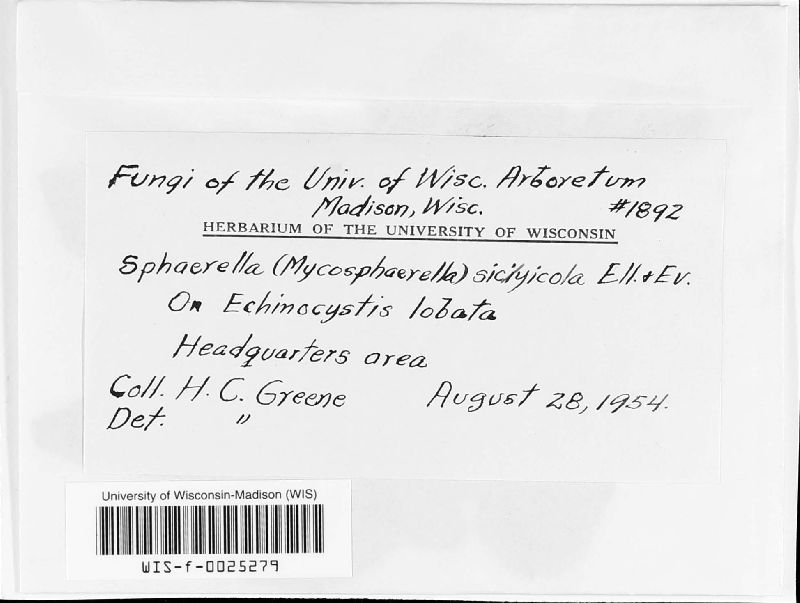 Fungi of the Univ. of Wisc. Arboretum
Madison, Wisc. #1892
HERBARIUM OF THE UNIVERSITY OF WISCONSIN
Sphaerella (Mycosphaerella) siciyicola Ell. & Ev.
On Echinocystis lobata
Headquarters area
Coll. H. C. Greene August 28, 1954.
Det. "
University of Wisconsin-Madison (WIS)
WIS-f-0025279